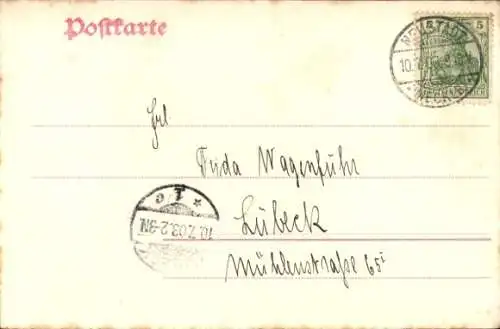 Postkarte
NEUSTADT
5
10.
(MECKL)
Frl.
Frida Wagenführ
Lübeck
Mühlenstraße 65 I
10.7.03.2-3N.